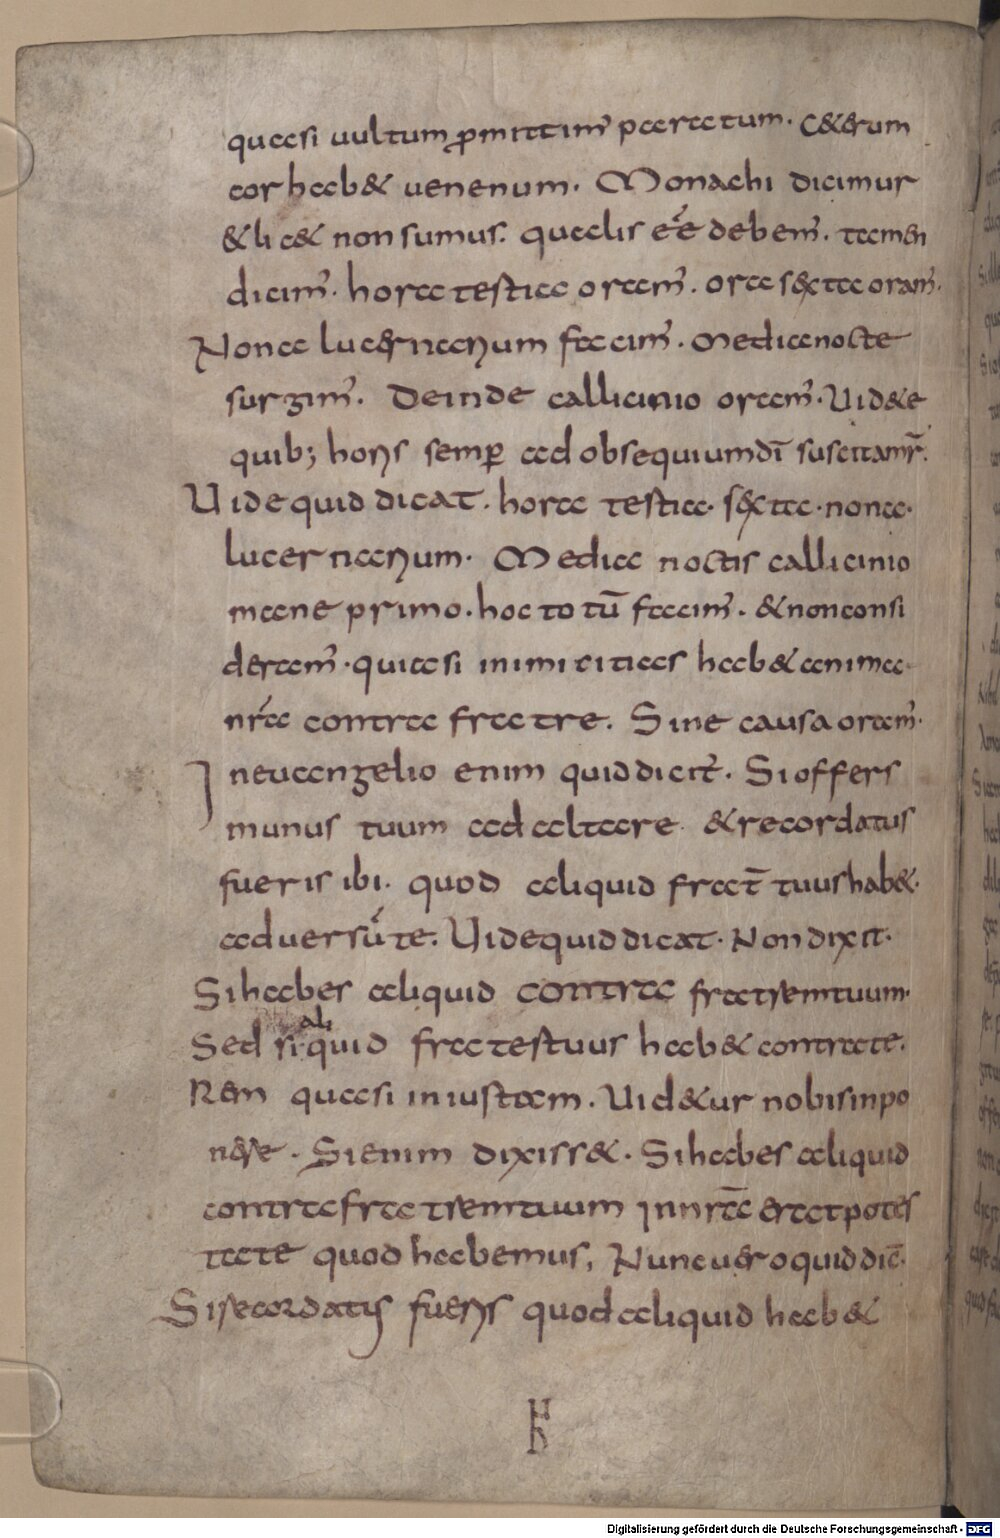 quasi uultum ꝓmittim̃ paratum. C&erum
cor hab& uenenum. Monachi dicimur
& lic& non sumus. qualis eẽ debem̃. tamen
dicim̃. hora testia oram̃. ora sexta oram̃.
Nona lucernarium facim̃. Media nocte
surgim̃. Deinde callicinio oram̃. Uid&e
quib; horis semꝑ ad obsequium dī suscitamr̃.
Uide quid dicat. hora testia. sexta. nona.
lucernarium. Media noctis callicinio
mane primo. hoc totū facim̃. & non consi
deram̃. quia si inimicitias hab& anima
nr̃a contra fratre. Sine causa oram̃.
In euangelio enim quid dicit. Si offers
munus tuum ad altare. & recordatus
fueris ibi. quod aliquid frat̄ tuus hab&.
aduersū te. Uide quid dicat. Non dixit.
Si habes aliquid contra fratrem tuum.
Sed si aliquid frates tuus hab& contra te.
Rem quasi iniustam. Uid&ur nobis inpo
nere. Si enim dixiss&. Si habes aliquid
contra fratrem tuum in nr̄a erat potes
tate quod habemus, Nunc uero quid dic̄.
Si recordatus fueris quod aliquid hab&
Digitalisierung gefördert durch die Deutsche Forschungsgemeinschaft - DFG